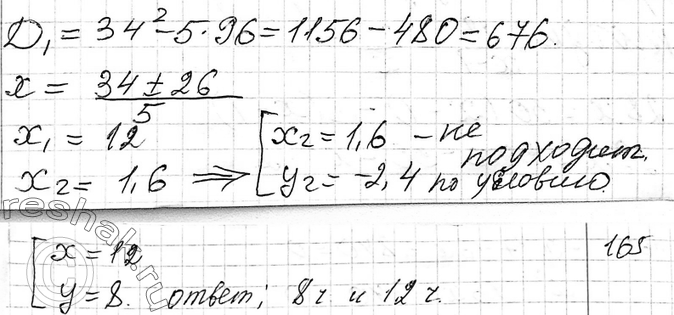 D₁ = 34² − 5·96 = 1156 − 480 = 676.
x = (34 ± 26)/5
x₁ = 12
x₂ = 1,6 ⟹ [x₂ = 1,6 – не подходит
y₂ = −2,4 по условию.
[x = 12
y = 8. ответ; 8 ч и 12 ч.
165
reshak.ru